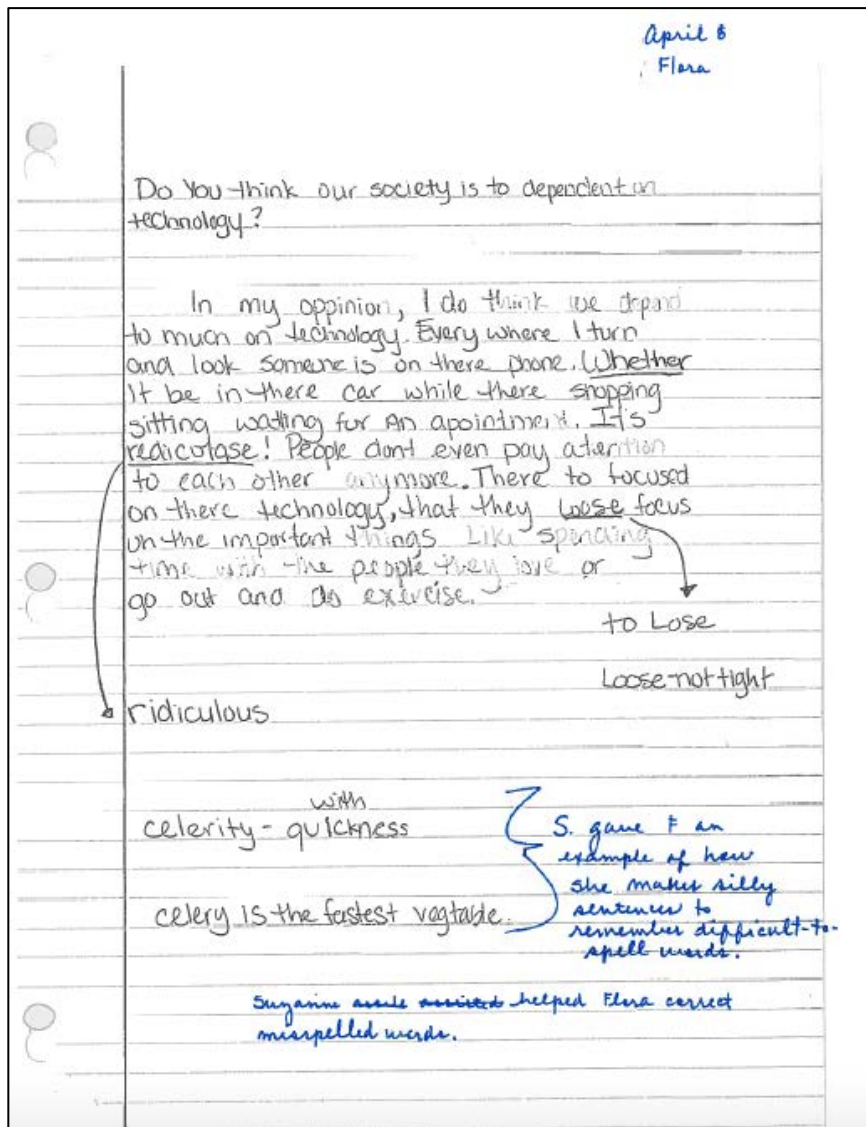 April 8
Flora
Do You think our society is to dependent on
technology?
In my oppinion, I do think we depend
to much on technology. Every where I turn
and look someone is on there phone. Whether
it be in there car while there shopping
sitting waiting for an apointment. It's
rediculase! People dont even pay atention
to each other anymore. There to focused
on there technology, that they loose focus
on the important things like spending
time with the people they love or
go out and do exercise.
to Lose
Loose-not tight
ridiculous
with
celerity - quickness
celery is the fastest vegtable.
S. gave F an
example of how
she makes silly
sentences to
remember difficult-to-
spell words.
Suzanne helped Flora correct
misspelled words.